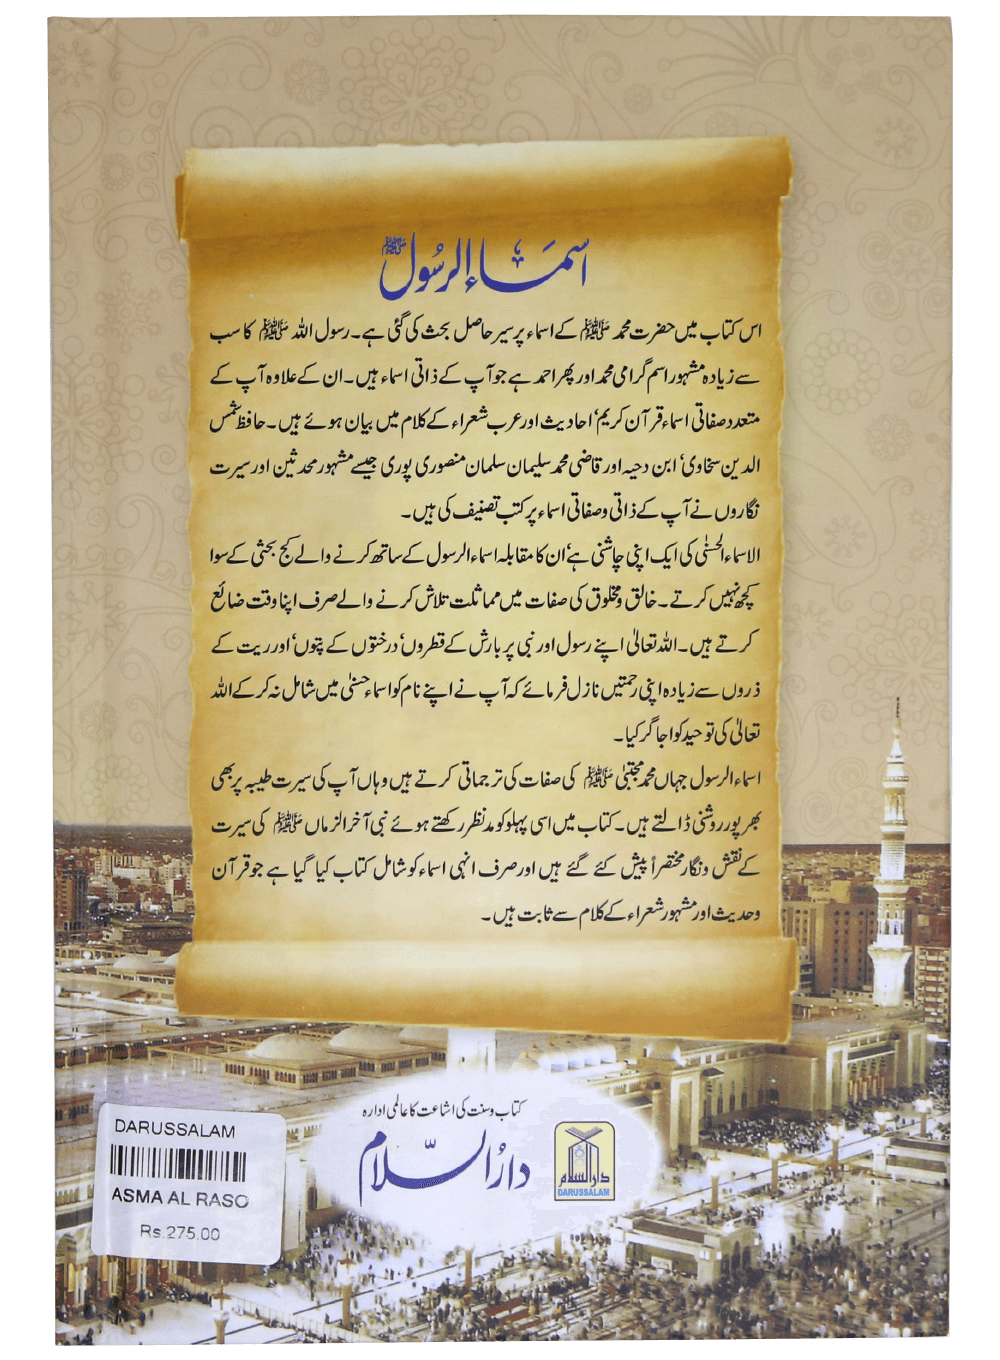 اسماء الرسول ﷺ
اس کتاب میں حضرت محمد ﷺ کے اسماء پر سیر حاصل بحث کی گئی ہے۔ رسول اللہ ﷺ کا سب
سے زیادہ مشہور اسم گرامی محمد اور پھر احمد ہے جو آپ کے ذاتی اسماء ہیں۔ ان کے علاوہ آپ کے
متعدد صفاتی اسماء قرآن کریم، احادیث اور عرب شعراء کے کلام میں بیان ہوئے ہیں۔ حافظ شمس
الدین سخاوی، ابن دحیہ اور قاضی محمد سلیمان سلمان منصوری پوری جیسے مشہور محدثین اور سیرت
نگاروں نے آپ کے ذاتی و صفاتی اسماء پر کتب تصنیف کی ہیں۔
الاسماء الحسنٰی کی ایک اپنی چاشنی ہے، ان کا مقابلہ اسماء الرسول کے ساتھ کرنے والے کج بحثی کے سوا
کچھ نہیں کرتے۔ خالق و مخلوق کی صفات میں مماثلت تلاش کرنے والے صرف اپنا وقت ضائع
کرتے ہیں۔ اللہ تعالیٰ اپنے رسول اور نبی پر بارش کے قطروں، درختوں کے پتوں، اور ریت کے
ذروں سے زیادہ اپنی رحمتیں نازل فرمائے کہ آپ نے اپنے نام کو اسماء حسنٰی میں شامل نہ کر کے اللہ
تعالیٰ کی توحید کو اجاگر کیا۔
اسماء الرسول جہاں محمد مجتبیٰ ﷺ کی صفات کی ترجمانی کرتے ہیں وہاں آپ کی سیرت طیبہ پر بھی
بھرپور روشنی ڈالتے ہیں۔ کتاب میں اسی پہلو کو مدنظر رکھتے ہوئے نبی آخر الزماں ﷺ کی سیرت
کے نقش و نگار مختصراً پیش کئے گئے ہیں اور صرف انہی اسماء کو شامل کتاب کیا گیا ہے جو قرآن
و حدیث اور مشہور شعراء کے کلام سے ثابت ہیں۔
کتاب و سنت کی اشاعت کا عالمی ادارہ
دارُ السّلام
دار السلام
DARUSSALAM
DARUSSALAM
ASMA AL RASO
Rs.275.00